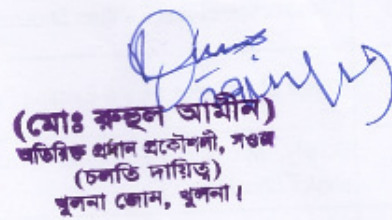 (মোঃ রুহুল আমীন)
অতিরিক্ত প্রধান প্রকৌশলী, সওজ
(চলতি দায়িত্ব)
খুলনা জোন, খুলনা।